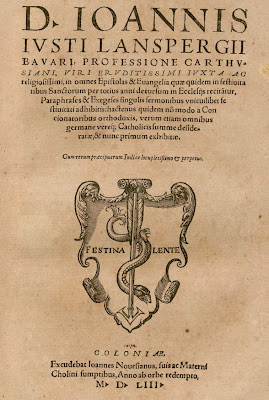 D. IOANNIS
IVSTI LANSPERGII
BAVARI, PROFESSIONE CARTHV-
SIANI, VIRI ERVDITISSIMI IVXTA AC
religiosissimi, in omnes Epistolas & Euangelia quæ quidem in festiuita
tibus Sanctorum per totius anni decursum in Ecclesijs recitātur,
Paraphrases & Exegeses singulis sermonibus vnicuilibet fe
stiuitati adhibitis: hactenus quidem nō modo à Con
cionatoribus orthodoxis, verum etiam omnibus
germane verèq; Catholicis summe deside-
ratæ, & nunc primum exhibitæ.
Cum rerum præcipuarum Indice locupletissimo & perpetuo.
FESTINA LENTE
COLONIAE.
Excudebat Ioannes Nouesianus, suis ac Materni
Cholini sumptibus, Anno ab orbe redempto,
M. D. LIII.